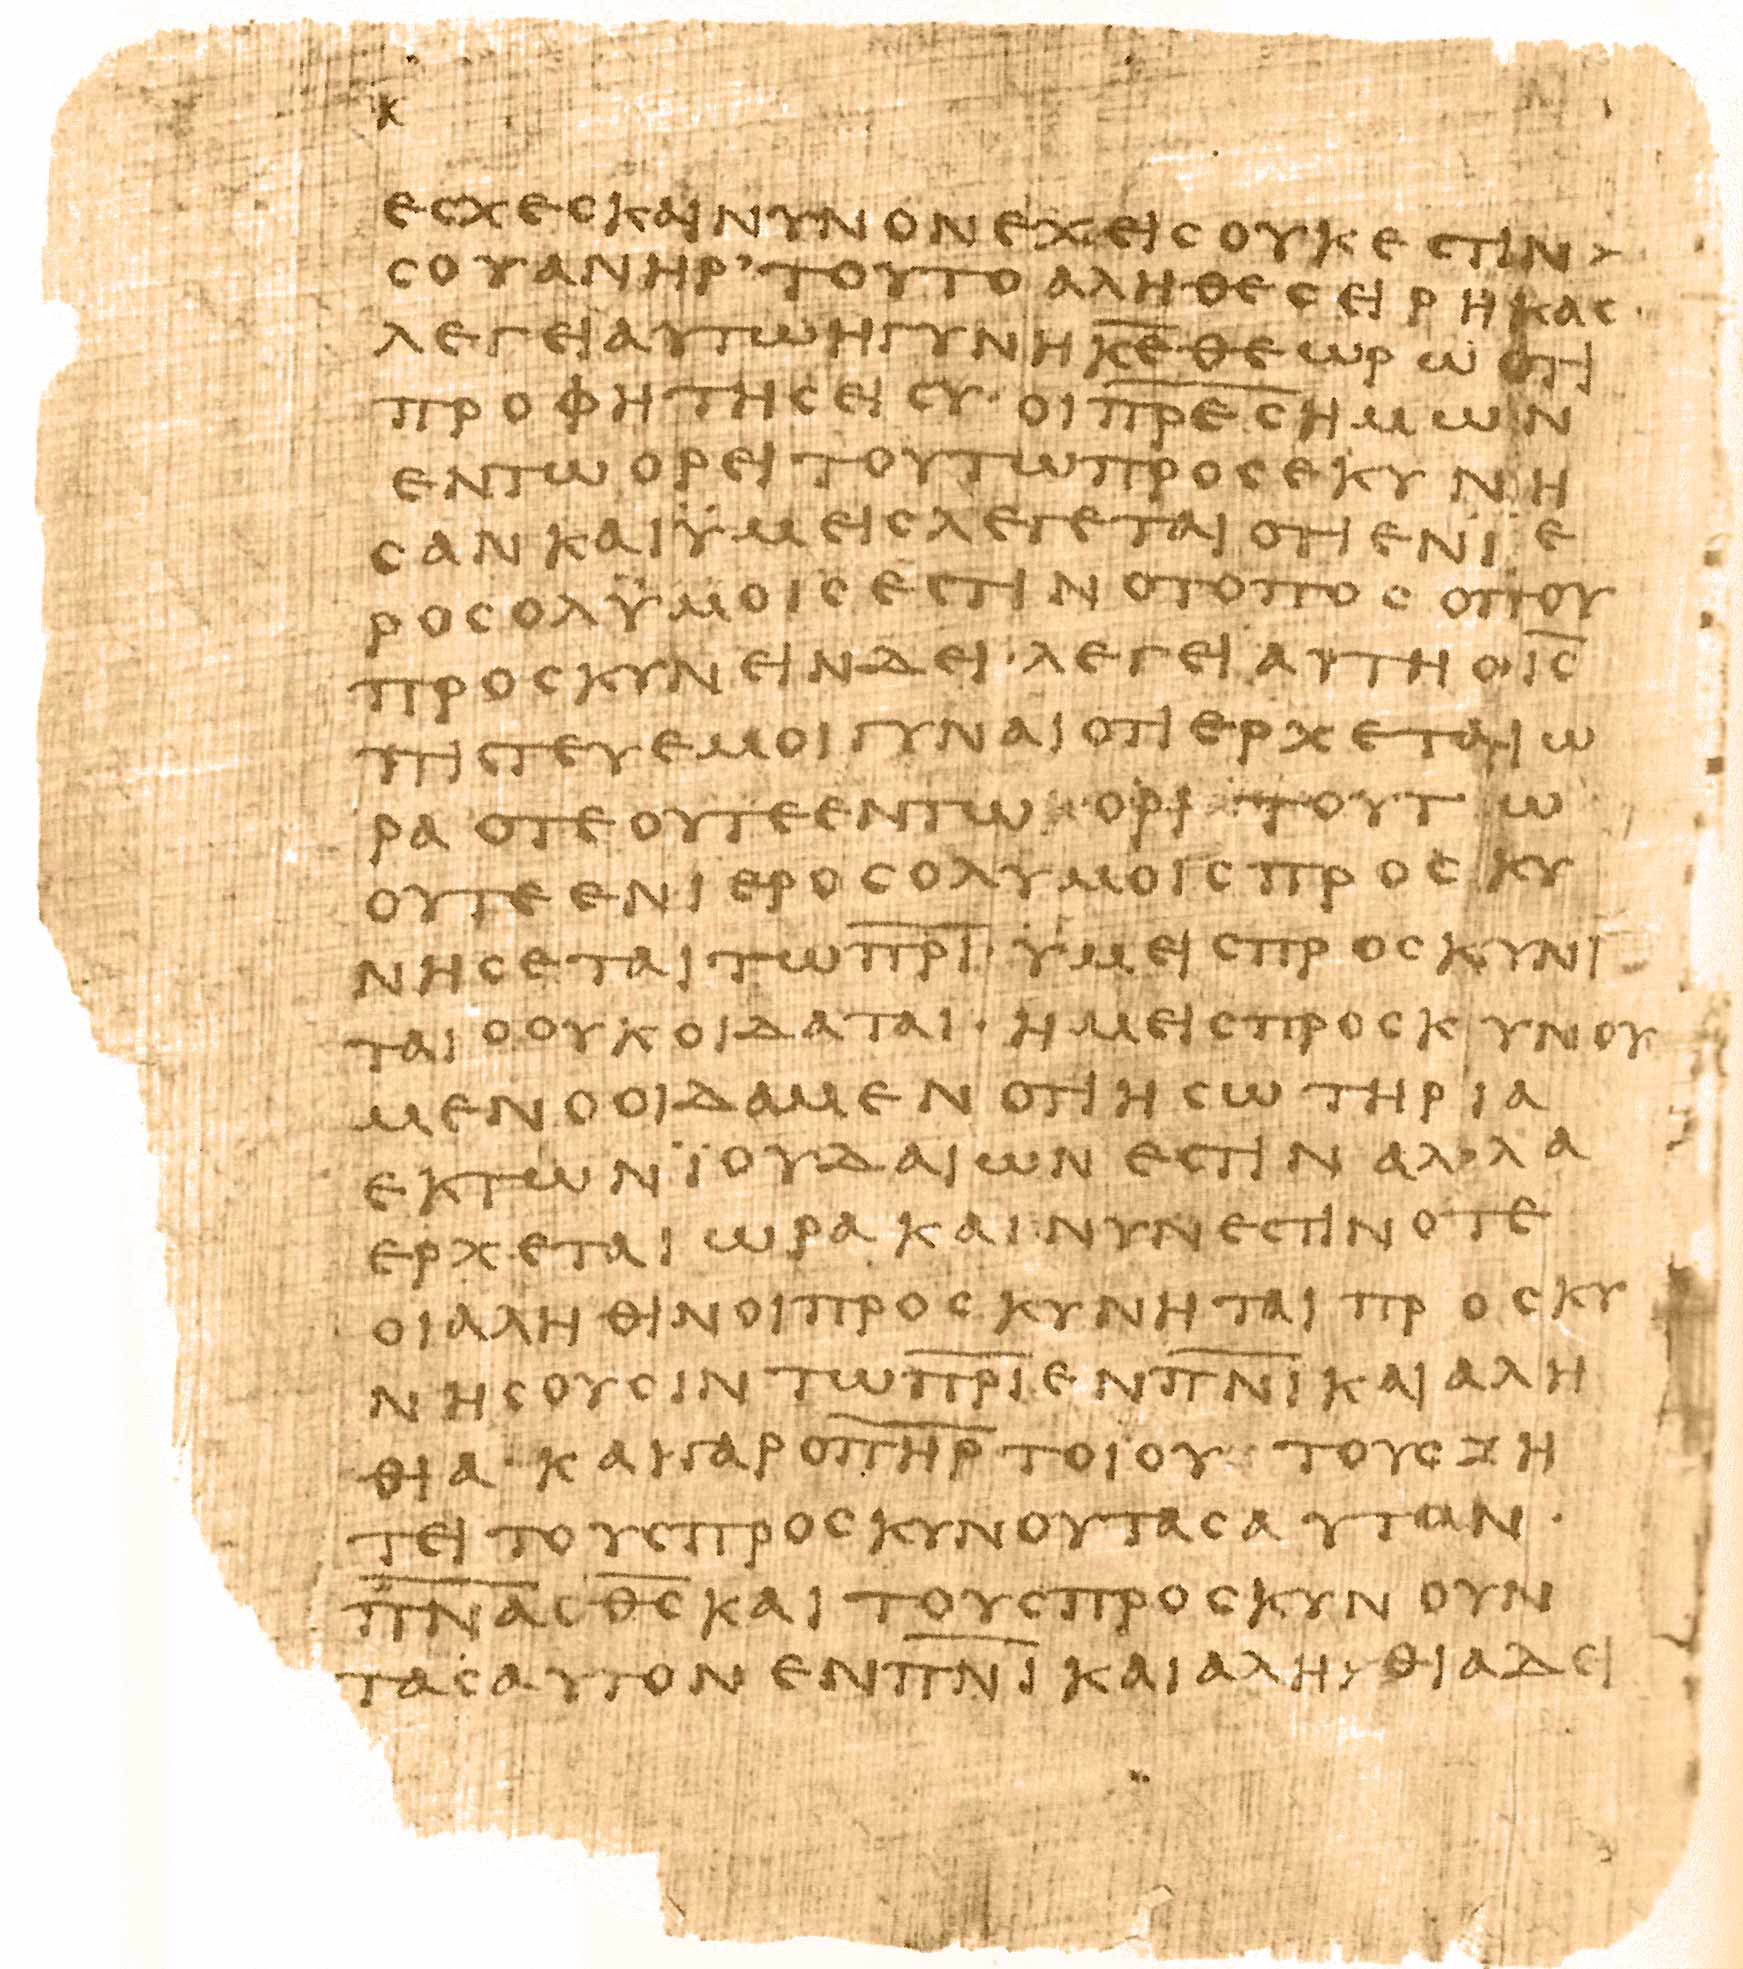 κ
εσχεσκαινυνονεχεισουκεστιν>
σουανηρ’τουτοαληθεσειρηκας·
λεγειαυτωηγυνηκ̅ε̅θεωρωοτι
προφητησεισυ·οιπ̅ρ̅ε̅ς̅ημων
εντωορειτουτωπροσεκυνη
σανκαιϋμεισλεγεταιοτιενϊε
ροσολϋμοισεστινοτοποσοπου
προσκυνεινδει·λεγειαυτηοι̅ς̅
πιστευεμοιγυναιοτιερχεταιω
ραοτεουτεεντωοριτουτω
ουτεενιεροσολυμοισπροσκυ
νησεταιτωπ̅ρ̅ι̅·ϋμεισπροσκυνι
ταιοουκοιδαται·ημεισπροσκυνου
μενοοιδαμενοτιησωτηρια
εκτωνϊουδαιωνεστιναλ’λα
ερχεταιωρακαινυνεστινοτε
οιαληθινοιπροσκυνηταιπροσκυ
νησουσιντωπ̅ρ̅ι̅ενπ̅ν̅ι̅καιαλη
θια·καιγαροπ̅η̅ρ̅τοιουτουσζη
τειτουσπροσκυνουτασαυτον·
π̅ν̅α̅σθ̅ς̅καιτουσπροσκυνουν
τασαυτονενπ̅ν̅ι̅καιαληθιαδει